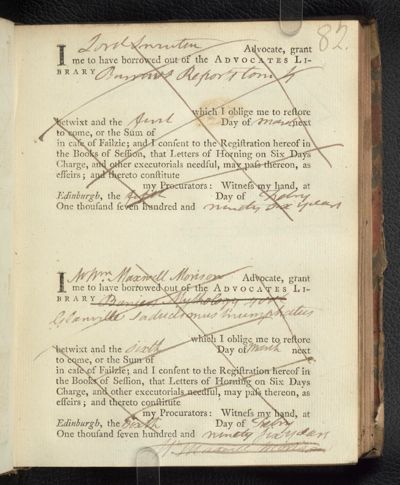 82.
I Lord Advocate, grant
me to have borrowed out of the ADVOCATES LI-
BRARY Burrows Reports tom 4
which I oblige me to reſtore
betwixt and the first Day of March next
to come, or the Sum of
in caſe of Failzie; and I conſent to the Regiſtration hereof in
the Books of Seſſion, that Letters of Horning on Six Days
Charge, and other executorials needful, may paſs thereon, as
effeirs; and thereto conſtitute
my Procurators: Witneſs my hand, at
Edinburgh, the fifth Day of Febry
One thouſand ſeven hundred and ninety six years
I Mr Wm. Maxwell Morison Advocate, grant
me to have borrowed out of the ADVOCATES LI-
BRARY Banier Mythology
Glanville Saducismus Triumphatus
which I oblige me to reſtore
betwixt and the sixth Day of March next
to come, or the Sum of
in caſe of Failzie; and I conſent to the Regiſtration hereof in
the Books of Seſſion, that Letters of Horning on Six Days
Charge, and other executorials needful, may paſs thereon, as
effeirs; and thereto conſtitute
my Procurators: Witneſs my hand, at
Edinburgh, the sixth Day of Febry
One thouſand ſeven hundred and ninety six years
W. Maxwell Morison